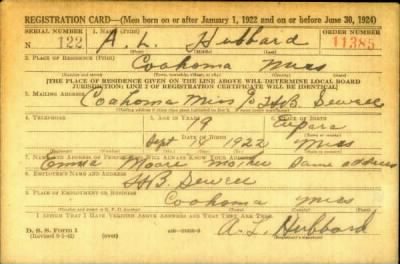 REGISTRATION CARD—(Men born on or after January 1, 1922 and on or before June 30, 1924)
SERIAL NUMBER 1. NAME (Print) ORDER NUMBER
N 122 A. L. Hubbard 11385
2. PLACE OF RESIDENCE (Print)
Coahoma Miss
[THE PLACE OF RESIDENCE GIVEN ON THE LINE ABOVE WILL DETERMINE LOCAL BOARD
JURISDICTION; LINE 2 OF REGISTRATION CERTIFICATE WILL BE IDENTICAL]
3. MAILING ADDRESS
Coahoma Miss
4. TELEPHONE 5. AGE IN YEARS 6. PLACE OF BIRTH
19 Eupara
DATE OF BIRTH
Sept 14 1922 Miss
7. NAME AND ADDRESS OF PERSON WHO WILL ALWAYS KNOW YOUR ADDRESS
Moore Mother Same address
8. EMPLOYER'S NAME AND ADDRESS
9. PLACE OF EMPLOYMENT OR BUSINESS
Coahoma Miss
I AFFIRM THAT I HAVE VERIFIED ABOVE ANSWERS AND THAT THEY ARE TRUE.
D. S. S. Form 1
(Revised 6-9-42) (over)
A. L. Hubbard
(Registrant's signature)